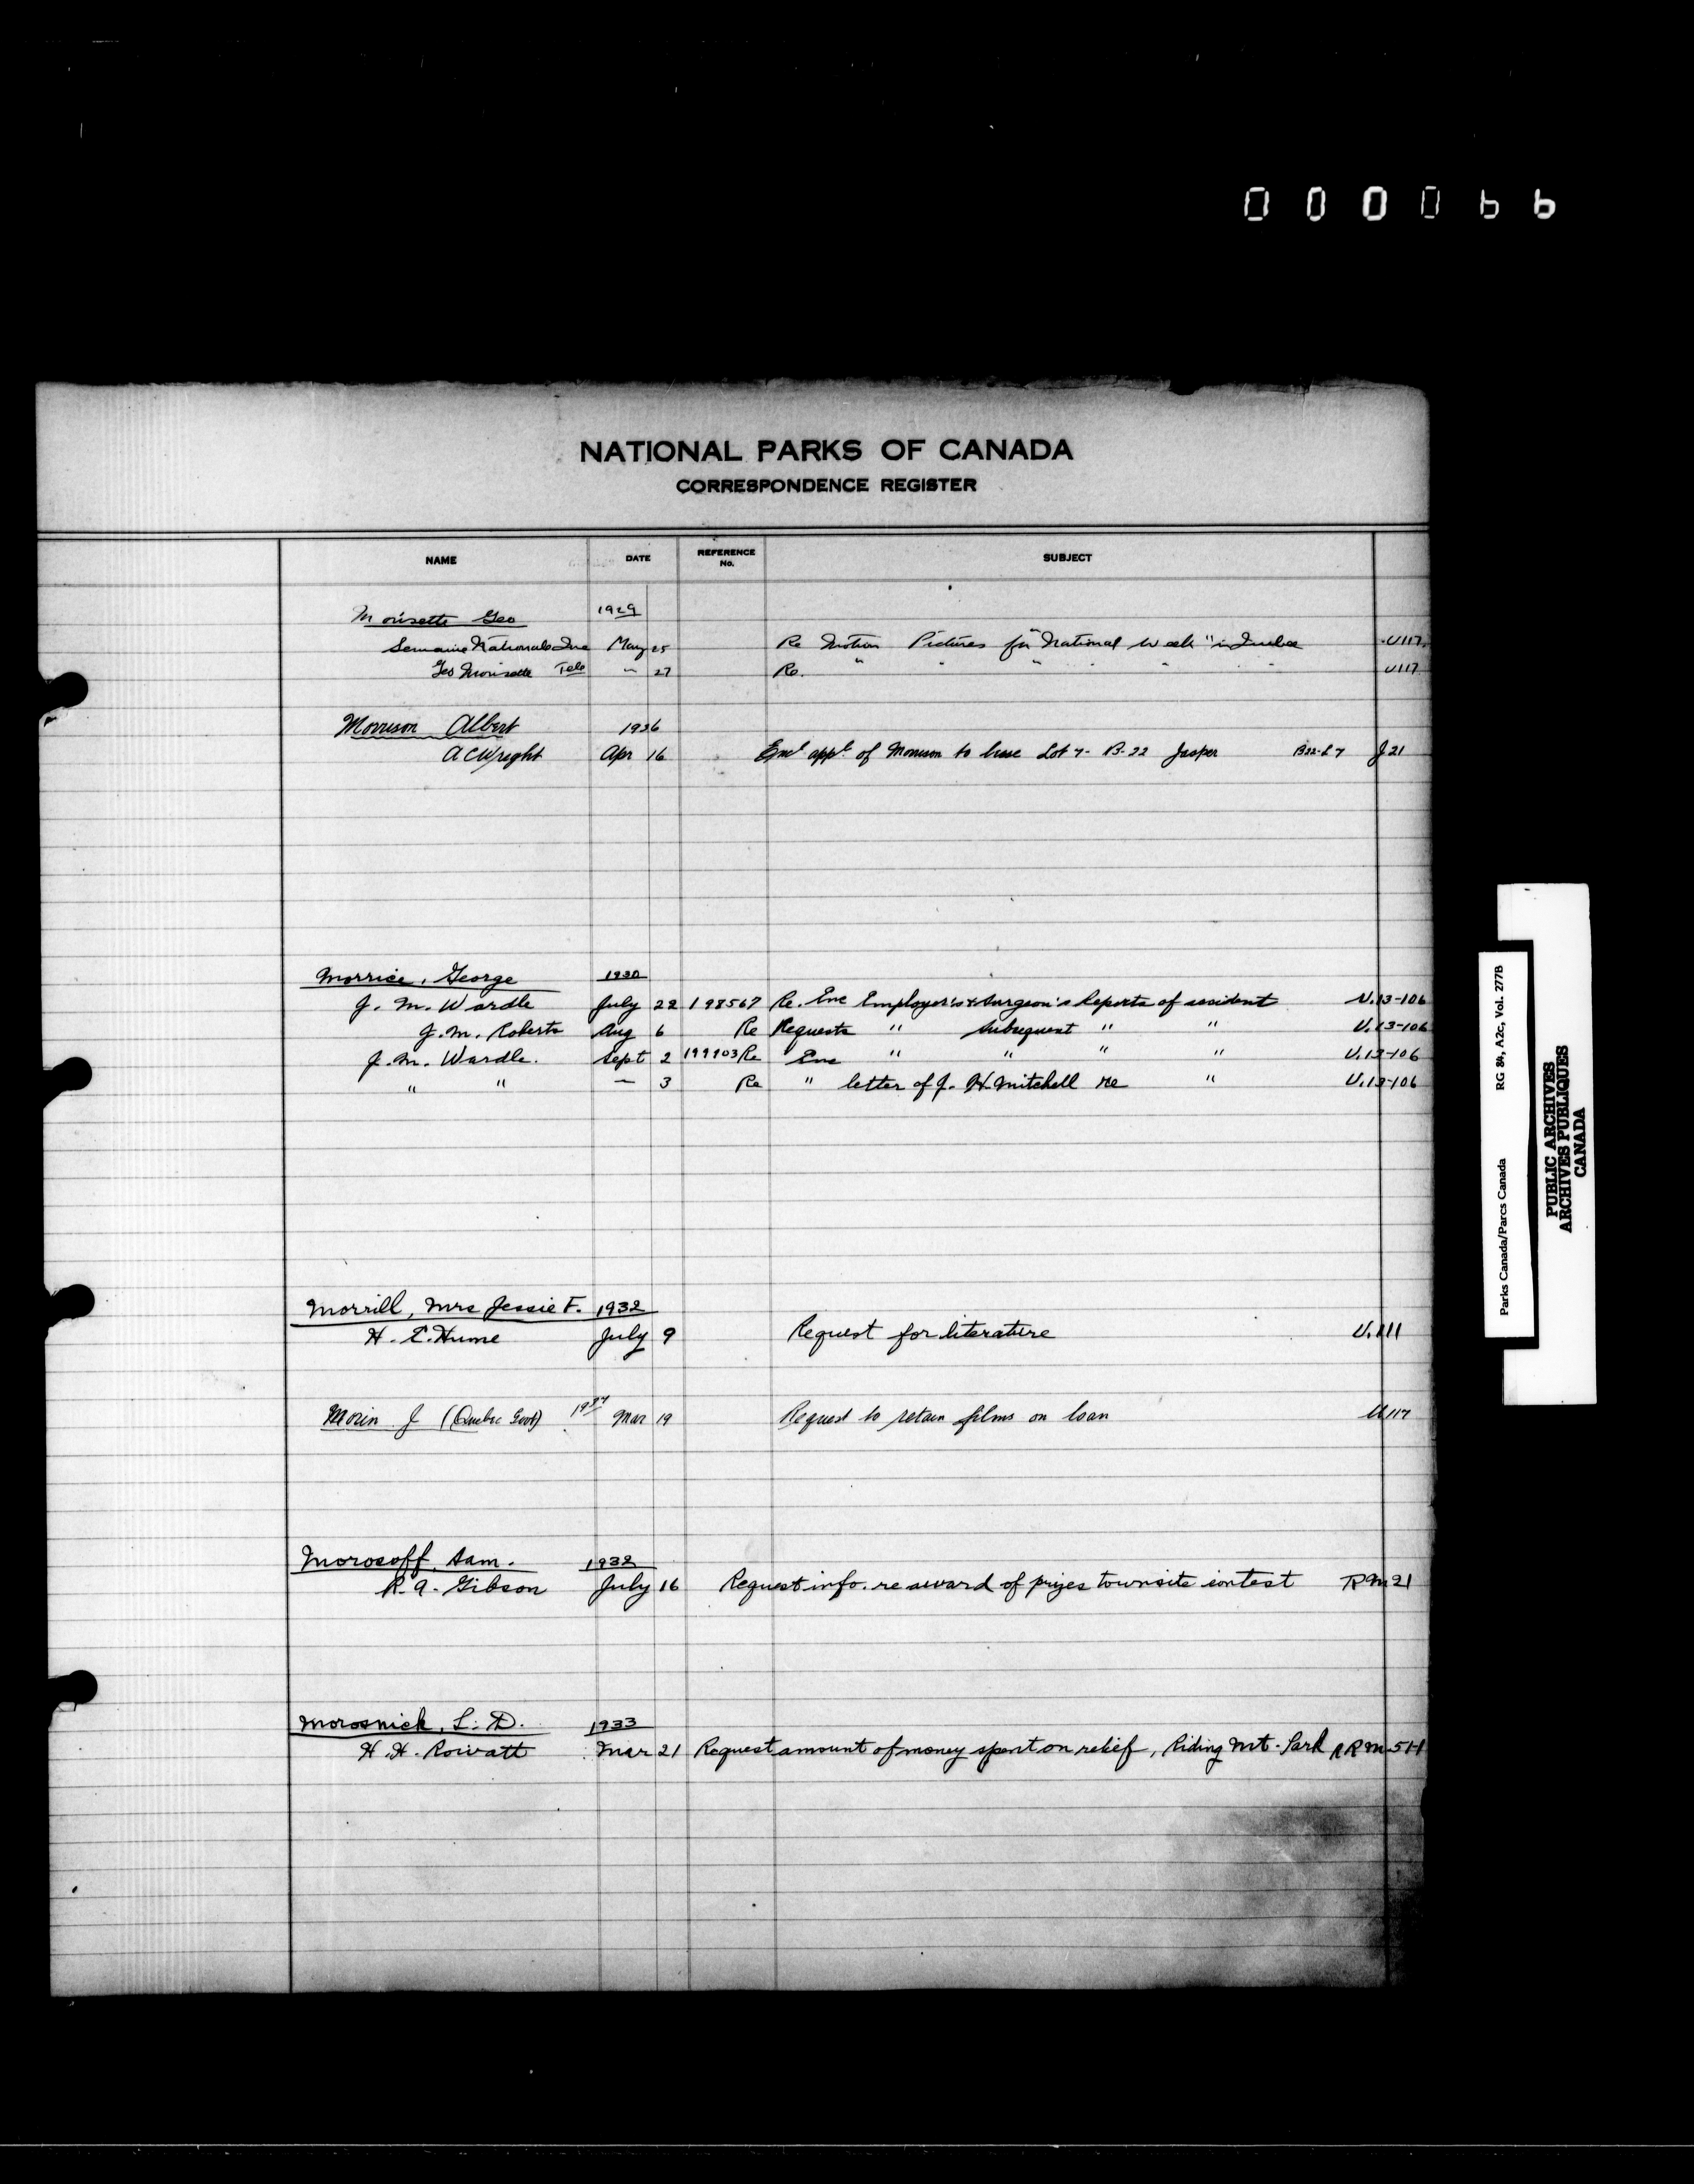 000066
NATIONAL PARKS OF CANADA
CORRESPONDENCE REGISTER
NAME DATE REFERENCE No. SUBJECT
Morisette Geo 1929
Semaine Nationale Inc May 25 Re Motion Pictures for "National Week" in Quebec U117.
Geo Morisette Tele " 27 Re. " " " " " " U117
Morrison Albert 1936
A C Wright Apr 16 Encl appl of Morrison to lease Lot 7- B-22 Jasper B22-L7 J21
Morrice, George 1930
J. M. Wardle July 22 198567 Re. Enc Employer's & Surgeon's Reports of accident U.13-106
J. M. Roberts Aug 6 Re Requests " Subsequent " " U.13-106
J. M. Wardle. Sept 2 199903 Re Enc " " " " U.13-106
" " — 3 Re " letter of J. H. Mitchell re " U.13-106
Morrill, Mrs Jessie F. 1932
H. E. Hume July 9 Request for literature U.111
Morin J (Quebec Govt) 1937 Mar 19 Request to retain films on loan U117
Morosoff, Sam. 1932
R. A. Gibson July 16 Request info. re award of prizes townsite contest RM21
Morosnick, L. D. 1933
H. H. Rowatt Mar 21 Request amount of money spent on relief, Riding Mt. Park RM 51-1
Parks Canada/Parcs Canada RG 84, A2c, Vol. 2778
PUBLIC ARCHIVES
ARCHIVES PUBLIQUES
CANADA